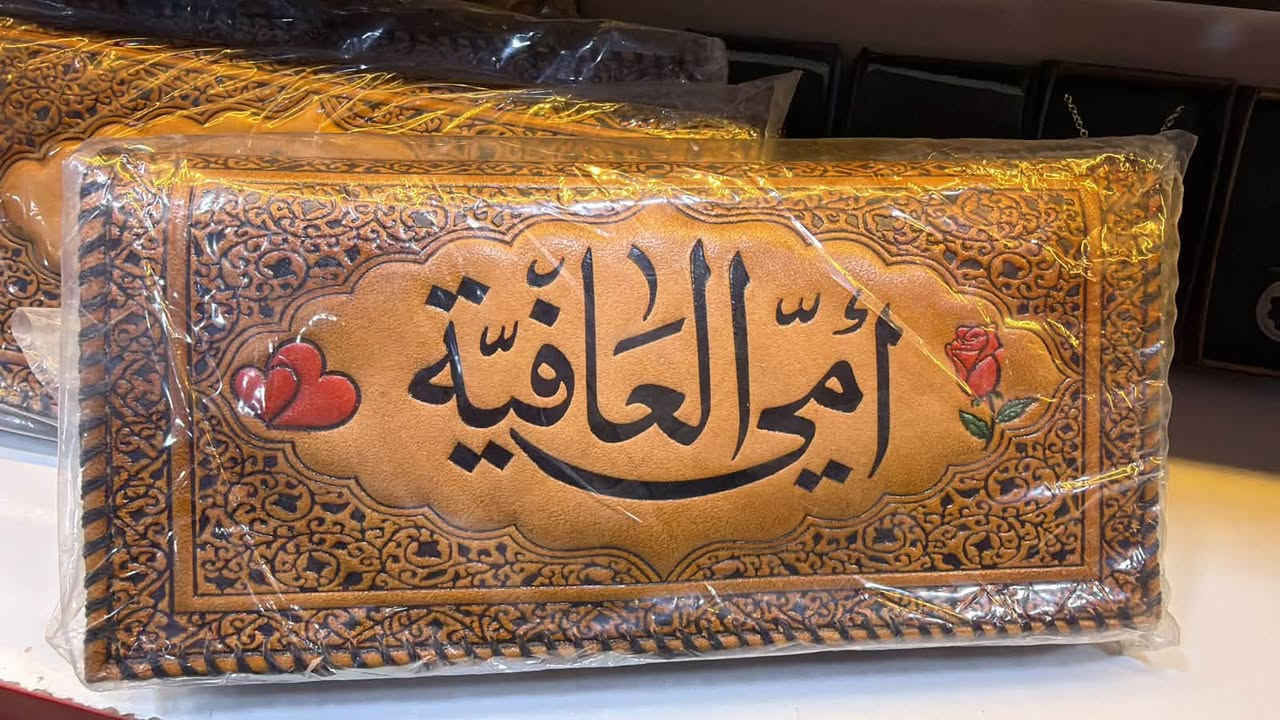 أمّي العافيّة